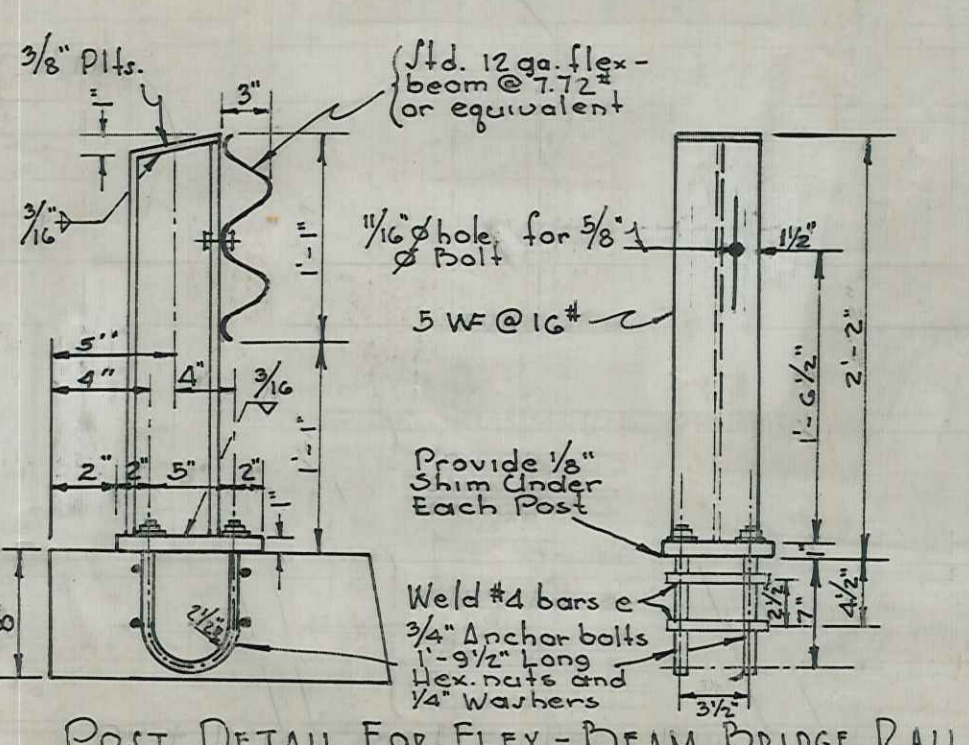 3/8" Plts.
1"
3"
Std. 12 ga. flex-
beam @ 7.72#
or equivalent
3/16
1'-1"
11/16" ø hole, for 5/8"
ø Bolt
1 1/2"
5 WF @ 16#
5"
4"
4"
3/16
2"
2"
5"
2"
1"
1'-1"
1'-6 1/2"
2'-2"
Provide 1/8"
Shim Under
Each Post
1"
8"
2 1/2" R
Weld #4 bars e
3/4" Anchor bolts
1'-9 1/2" Long
Hex. nuts and
1/4" Washers
2 1/2"
7"
4 1/2"
3 1/2"
POST DETAIL FOR FLEX-BEAM BRIDGE RAIL